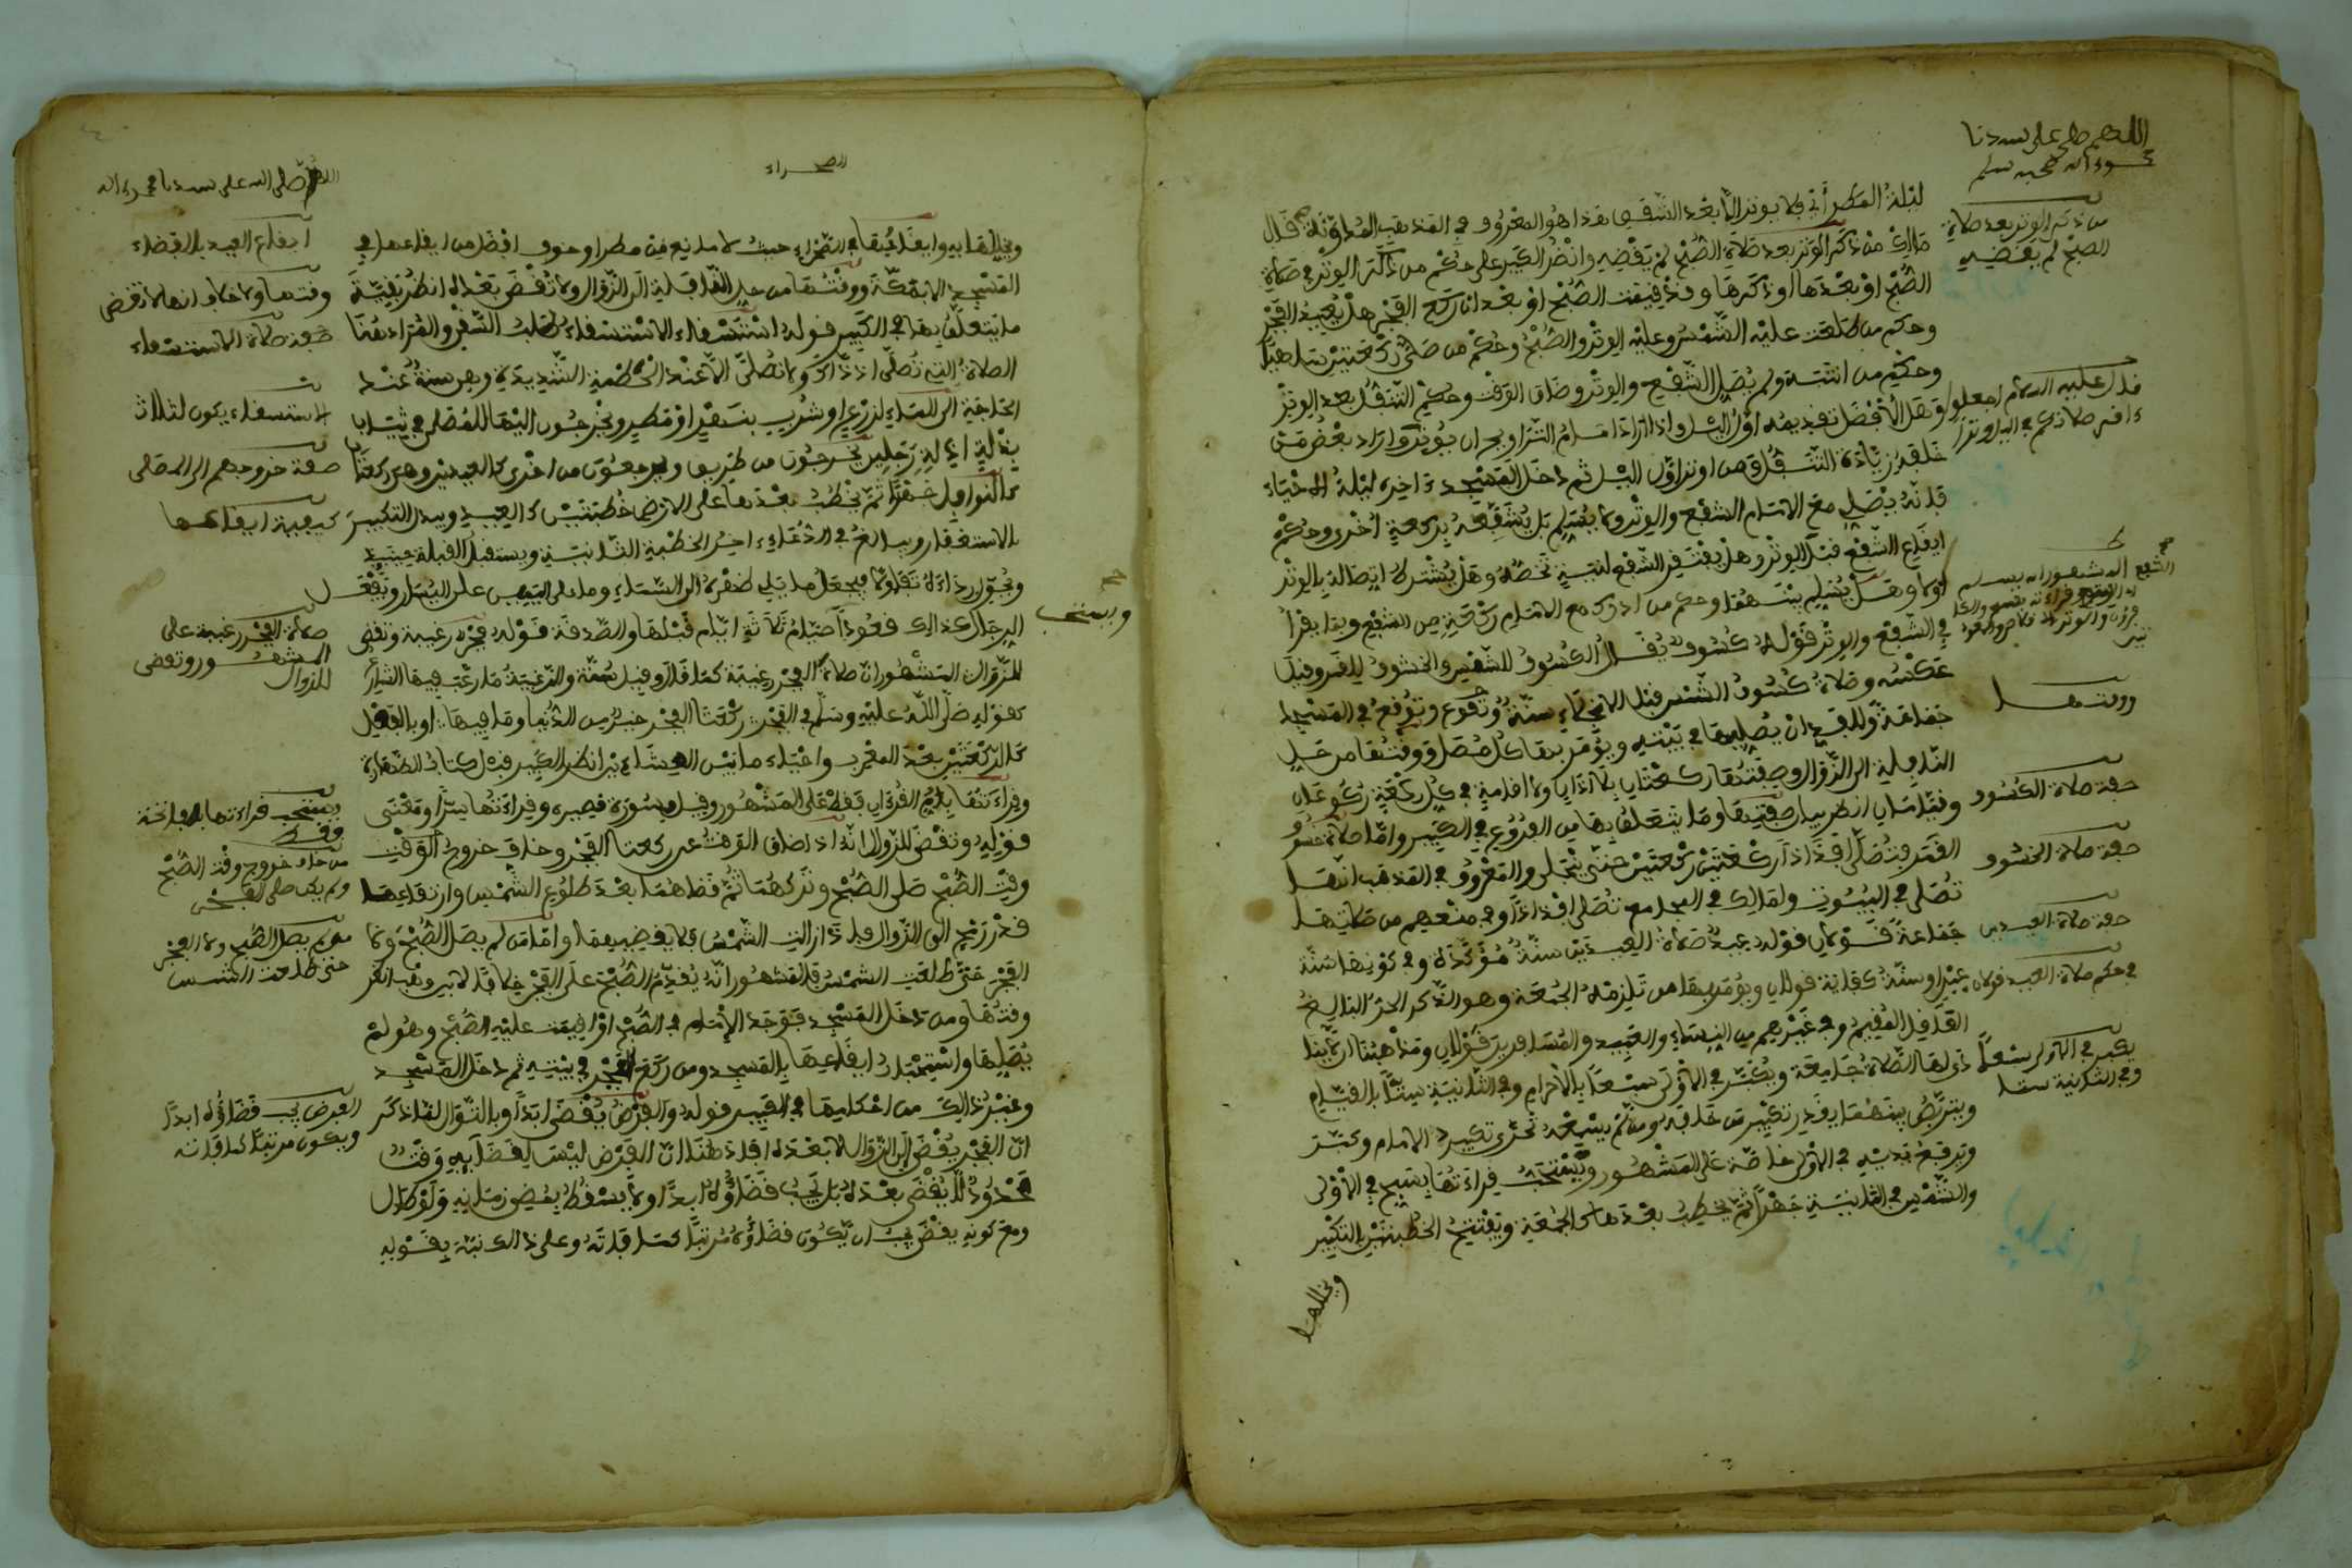 اللهم صل على سيدنا
محمد وءاله وصحبه وسلم
ليلة المطر أي فلا يوتر إلا بعد الشفق هذا هو المعروف في المذهب المدونة قال
مالك من ذكر الوتر بعد صلاة الصبح لم يقضيه وانظر الكبير على حكم من ذكر الوتر في صلاة
الصبح أو بعدها أو ذكرها وقد أقيمت الصبح أو بعد ان ركع الفجر هل يعيد الفجر
وحكم من طلعت عليه الشمس وعليه الوتر والصبح وحكم من صلى ركعتين ساهيا
وحكم من انتبه ولم يصل الشفع والوتر وضاق الوقت وحكم التنفل بعد الوتر
وهل الأفضل تقديمه أول الليل وإذا أراد امام التراويح ان يوتر وأراد بعض من
خلفه زيادة التنفل ومن أوتر أول الليل ثم دخل المسجد ءاخره ليلة الاحياء
فانه يصلي مع الامام الشفع والوتر ولا يسلم بل يشفعه بركعة أخرى وحكم
ايقاع الشفع قبل الوتر وهل يفتقر الشفع لنية تخصه وهل يشترط اتصاله بالوتر
أو لا وهل يسلم بينهما وحكم من أدرك مع الامام ركعة من الشفع وبما يقرأ
في الشفع والوتر قوله كسوف يقال الكسوف للشمس والخسوف للقمر وقيل
عكسه وصلاة كسوف الشمس قبل الانجلاء سنة وتوقع في المسجد
جماعة وللفذ ان يصليها في بيته ويؤمر بها كل مصل ووقتها من حل
النافلة إلى الزوال وصفتها ركعتان بلا أذان ولا اقامة في كل ركعة ركوعان
وقيامان انظر بيان صفتها وما يتعلق بها من الفروع في الكبير واما صلاة خسوف
القمر فتصلى أفذاذا ركعتين ركعتين حتى ينجلي والمعروف في المذهب أنها
تصلى في البيوت ولمالك في المجامع تصلى أفذاذا وفي منعهم من صلاتها
جماعة قولان قوله عيد صلاة العيدين سنة مؤكدة وفي كونها سنة
عين أو سنة كفاية قولان ويؤمر بها من تلزمه الجمعة وهو الذكر الحر البالغ
العاقل المقيم وفي غيرهم من النساء والعبيد والمسافرين قولان ومذهبنا أن لا ينادى
لها الصلاة جامعة ويكبر في الأولى سبعا بالاحرام وفي الثانية ستا بالقيام
ويتربص بينهما بقدر تكبير من خلفه ومن لم يسمعه تحرى تكبير الامام وكبر
ويرفع يديه في الأولى خاصة على المشهور ويستحب قراءتها بسبح في الأولى
والشمس في الثانية جهرا ثم يخطب بعدها كالجمعة ويفتتح الخطبتين بالتكبير
ويخللهما
من ذكر الوتر بعد صلاة
الصبح لم يقضيه
قال عليه السلام اجعلوا
ءاخر صلاتكم في الليل وترا
ووقتها
صفة صلاة الكسوف
صفة صلاة الخسوف
صفة صلاة العيدين
في حكم صلاة العيد قولان
يكبر في الأولى سبعا
وفي الثانية ستا
الصحراء
اللهم صلى الله على سيدنا محمد وءاله
ويخللهما به وايقاعها في الصحراء حيث لا مانع من مطر أو خوف أفضل من ايقاعها في
المسجد الا بمكة ووقتها من حل النافلة إلى الزوال ولا تقضى بعده انظر بقية
ما يتعلق بها في الكبير قوله استسقاء الاستسقاء طلب السقي والمراد هنا
الصلاة التي تصلى اذ ذاك ولا تصلى الا عند الحطمة الشديدة وهي سنة عند
الحاجة إلى الماء لزرع أو شرب بنهر أو مطر ويخرجون اليها للمصلى في ثياب
بذلة أي مهنة رجلين يخرجون من طريق ويرجعون من أخرى كالعيدين وهي ركعتان
كالنوافل جهرا ثم يخطب بعدها على الارض خطبتين كالعيد ويبدل التكبير
بالاستغفار ويبالغ في الدعاء ءاخر الخطبة الثانية ويستقبل القبلة حينئذ
ويحول رداءه تفاؤلا فيجعل ما يلي ظهره إلى السماء وما على اليمين على اليسار ويفعل
الرجال كذلك قعودا صيام ثلاثة أيام قبلها والصدقة قوله فجر رغيبة وتقضى
للزوال المشهور أن صلاة الفجر رغيبة كما قال وقيل سنة والرغيبة ما رغب فيها الشارع
كقوله صلى الله عليه وسلم في الفجر ركعتا الفجر خير من الدنيا وما فيها أو بالفعل
كالركعتين بعد المغرب واحياء ما بين العشاءين انظر الكبير قبل كتاب الطهارة
وقراءتها بأم القرءان فقط على المشهور وقيل وسورة قصيرة وقراءتها سرا ومعنى
قوله وتقضى للزوال انه اذ ضاق الوقت عن ركعتا الفجر وخاف خروج الوقت
وقت الصبح صلى الصبح وتركهما ثم قضاهما بعد طلوع الشمس وارتفاعها
قدر رمح إلى الزوال فإذا زالت الشمس فلا يقضيهما وأما من لم يصل الصبح ولا
الفجر حتى طلعت الشمس فالمشهور أنه يقدم الصبح على الفجر خلافا لابن وهب انظر
وقتها ومن دخل المسجد فوجد الإمام في الصبح أو أقيمت عليه الصبح وهو لم
يصليها واستحباب ايقاعها بالمسجد ومن ركع الفجر في بيته ثم دخل المسجد
وغير ذلك من احكامها في الكبير قوله والفرض يقضى ابدا وبالتوال لما ذكر
أن الفجر يقضى إلى الزوال لا بعده أفاد هنا أن الفرض ليس لقضائه وقت
محدود لا يقضى بعده بل يجب قضاؤه ابدا ولا يسقط بمضي زمانه ولو طال
ومع كونه يقضى يجب ان يكون قضاؤه مرتبا كما فاته وعلى ذلك نبه بقوله
ويستحب
ايقاع العيد بالفضاء
وقتها ولا خلاف انها لا تقضى
صفة صلاة الاستسقاء
الاستسقاء يكون لثلاث
صفة خروجهم إلى المصلى
كيفية ايقاعها
صلاة الفجر رغيبة على
المشهور وتقضى
للزوال
ويستحب قراءتها بالفاتحة
فقط
من خاف خروج وقت الصبح
ولم يكن صلى الفجر
من لم يصل الصبح ولا الفجر
حتى طلعت الشمس
الفرض يجب قضاؤه ابدا
ويكون مرتبا كما فاته